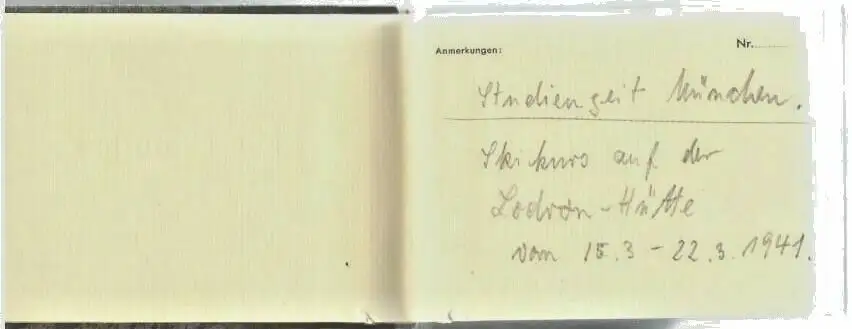 Anmerkungen:
Nr.
Studienzeit München.
Skikurs auf der
Lodron-Hütte
vom 15.3 - 22.3.1941.